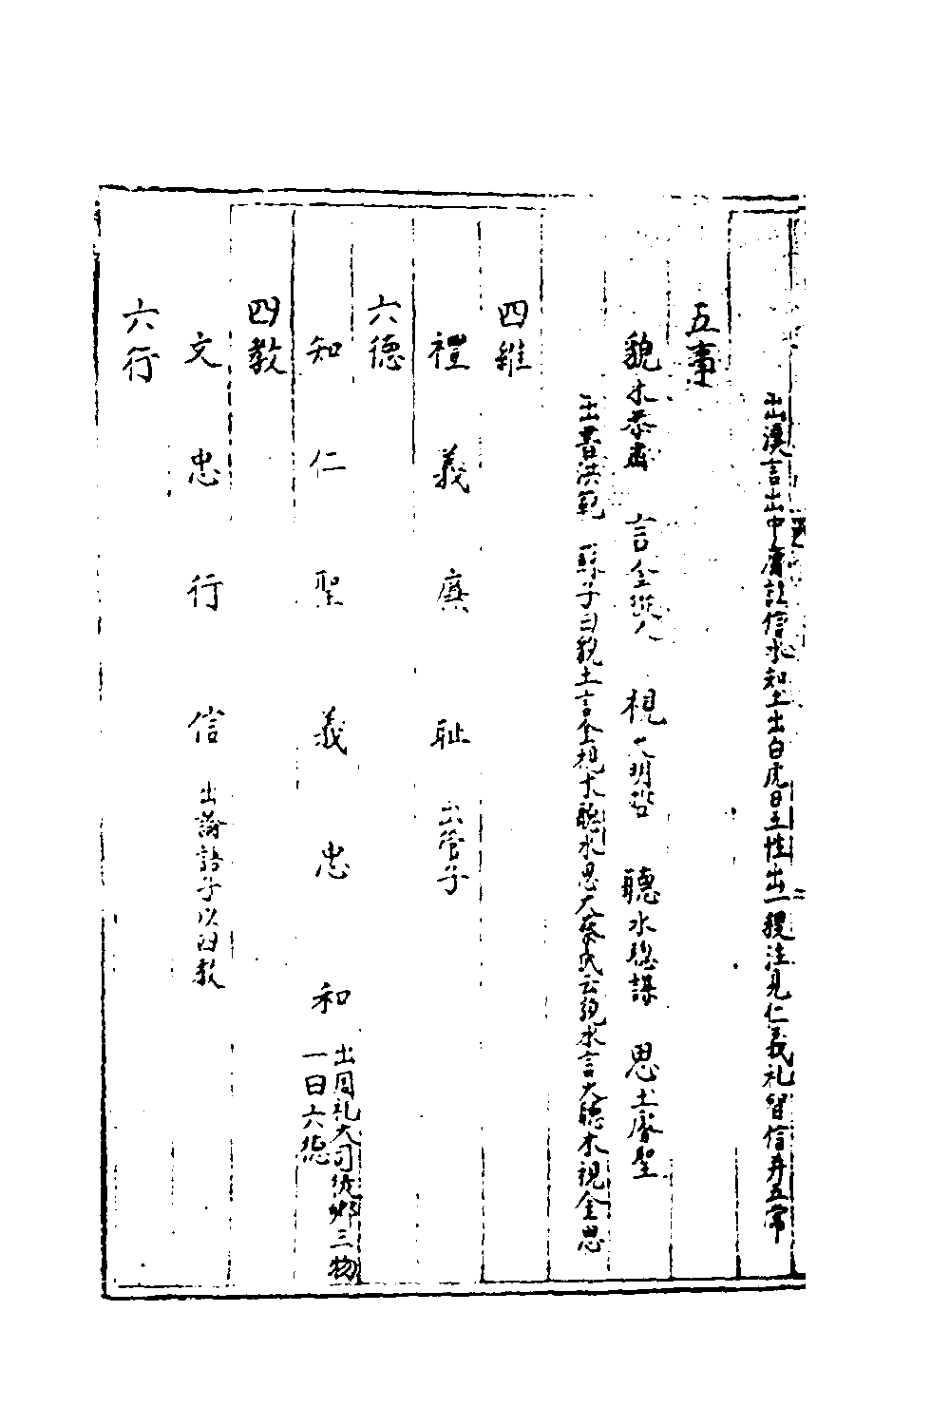 出漢言出中庸說信水知土出白虎曰五性出一稷注見仁義礼智信并五常
五事
貌木恭肅 言金從乂 視火明哲 聽水聰謀 思土睿聖
出書洪範 蘇子曰貌土言金視木聽水思火蔡氏云貌水言火聽木視金思
四維
禮 義 廉 耻 出管子
六德
知 仁 聖 義 忠 和 出周礼大司徒鄉三物
一曰六德
四教
文 忠 行 信 出論語子以四教
六行